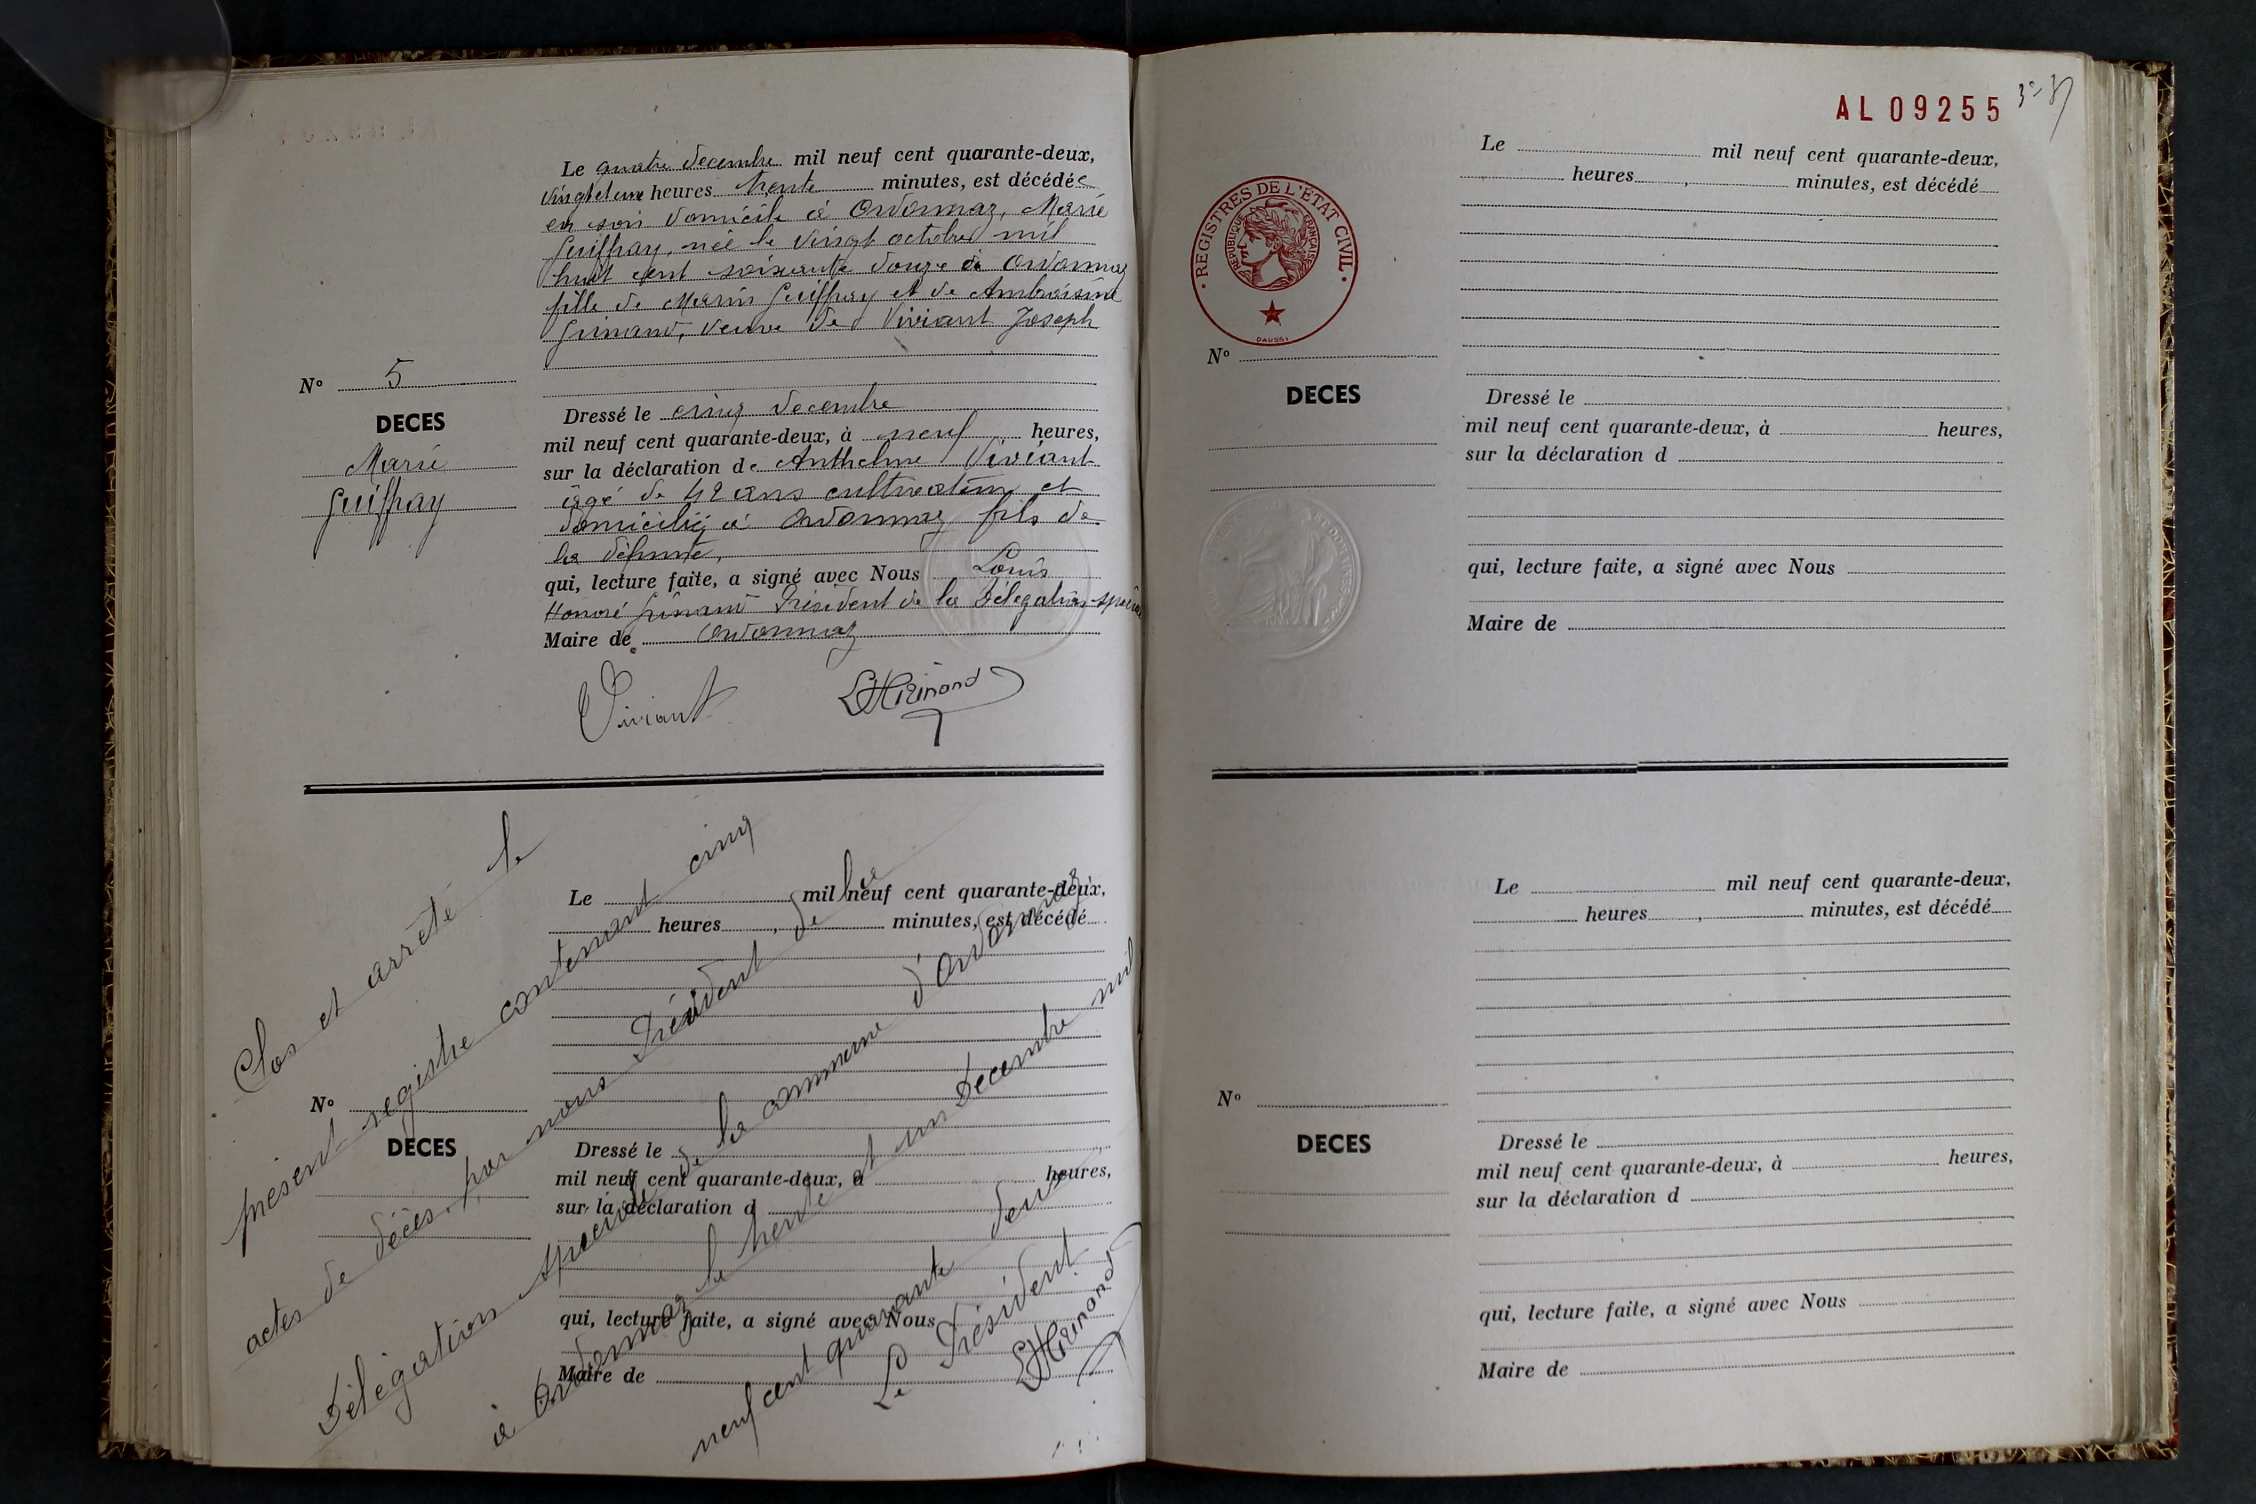 Le quatre décembre mil neuf cent quarante-deux,
vingt et une heures trente minutes, est décédée
en son domicile à Ordonnaz, Marie
Guiffray, née le vingt octobre mil
huit cent soixante douze à Ordonnaz
fille de Marin Guiffray et de Ambroisine
Grinand, veuve de Viviant Joseph
N° 5
DECES
Marie
Guiffray
Dressé le cinq décembre
mil neuf cent quarante-deux, à neuf heures,
sur la déclaration de Anthelme Viviant
âgé de 42 ans cultivateur et
domicilié à Ordonnaz fils de
la défunte,
qui, lecture faite, a signé avec Nous Louis
Honoré Grinand Président de la Délégation spéciale
Maire de Ordonnaz
Viviant LHGrinand
Le mil neuf cent quarante-deux,
heures , minutes, est décédé
N°
DECES
Dressé le
mil neuf cent quarante-deux, à heures,
sur la déclaration d
qui, lecture faite, a signé avec Nous
Maire de
Clos et arrêté le
présent registre contenant cinq
actes de décès, par nous Président de la
Délégation spéciale de la commune d'Ordonnaz
à Ordonnaz le trente et un Décembre mil
neuf cent quarante deux
Le Président
LHGrinand
AL 09255
REGISTRES DE L'ÉTAT CIVIL
REPUBLIQUE FRANÇAISE
Le mil neuf cent quarante-deux,
heures , minutes, est décédé
N°
DECES
Dressé le
mil neuf cent quarante-deux, à heures,
sur la déclaration d
qui, lecture faite, a signé avec Nous
Maire de
Le mil neuf cent quarante-deux,
heures , minutes, est décédé
N°
DECES
Dressé le
mil neuf cent quarante-deux, à heures,
sur la déclaration d
qui, lecture faite, a signé avec Nous
Maire de